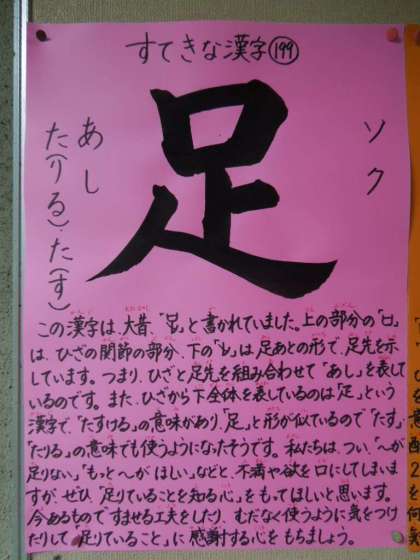 すてきな漢字(199)
足
ソク
あし
た(りる)、た(す)
この漢字は、大昔、「」と書かれていました。上の部分の「口」
は、ひざの関節の部分、下の「」は足あとの形で、足先を示
しています。つまり、ひざと足先を組み合わせて「あし」を表して
いるのです。また、ひざから下全体を表しているのは「疋」という
漢字で、「たすける」の意味があり、「足」と形が似ているので「たす」
「たりる」の意味でも使うようになったそうです。私たちは、つい、「〜が
足りない」「もっと〜が ほしい」などと、不満や欲を口にしてしまいま
すが、ぜひ、「足りていることを知る心」をもってほしいと思います。
今あるもので すませる工夫をしたり、むだなく使うように気をつけ
たりして「足りていること」に感謝する心をもちましょう。